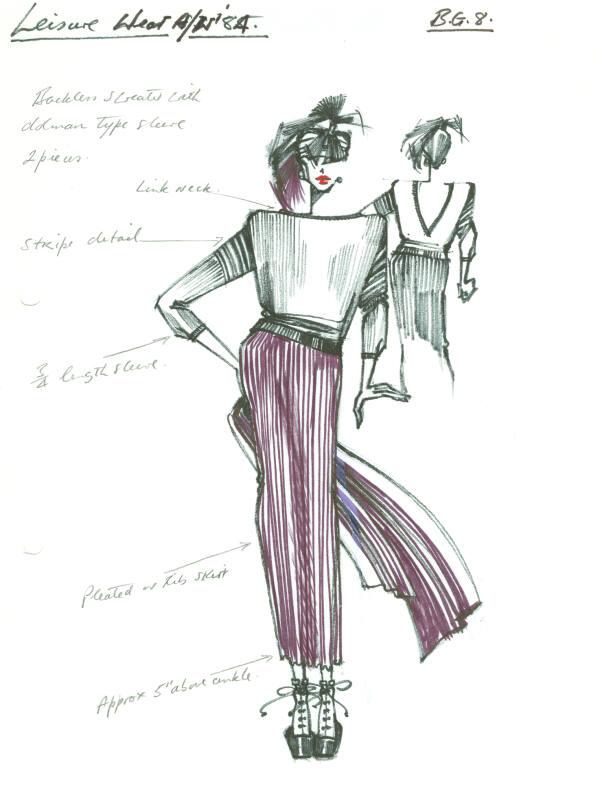 Leisure Wear A/W'84.
B.G.8.
Backless Sweater with
dolman type sleeve
2 pieces.
Link neck.
Stripe detail
3/4 length sleeve.
Pleated or Rib skirt
Approx 5" above ankle.